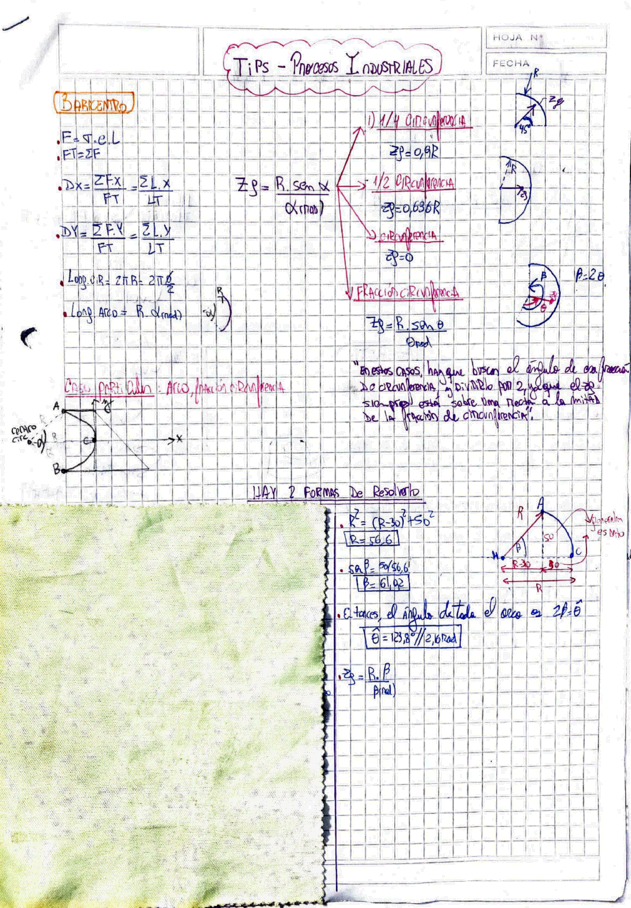 HOJA Nº
FECHA
TIPS - PROCESOS INDUSTRIALES
BARICENTRO
. F = σ.e.L
. FT = ΣF
. DX = ΣF.X / FT = ΣL.X / LT
. DY = ΣF.Y / FT = ΣL.Y / LT
. Long. CIR = 2πR = 2π ϕ/2
. Long. ARCO = R. α(rad)
R
α
Zg = R. sen α / α(rad)
1) 1/4 CIRCUNFERENCIA
Zg = 0,9R
R
Zg
45°
1/2 CIRCUNFERENCIA
Zg = 0,636R
R
Zg
CIRCUNFERENCIA
Zg = 0
FRACCIÓN CIRCUNFERENCIA
Zg = R. sen θ / θ rad
β
θ
β = 2θ
"En estos casos, hay que buscar el ángulo de esa fracción
De circunferencia, y DIVIDIRLO POR 2, ya que el zg
siempre está sobre una recta a la mitad
De la fracción de circunferencia".
CASO PARTICULAR: ARCO, FRACCIÓN CIRCUNFERENCIA
A
B
C
X
centro
circ
HAY 2 FORMAS De Resolverlo
. R² = (R-30)² + 50²
R = 56,6
. sen β = 50/56,6
β = 61,92
. Entonces, el ángulo de todo el arco es 2β = θ̂
θ̂ = 123,8° // 2,16 rad
. Zg = R. β / β(rad)
A
R
50
β
C
R-30
30
R